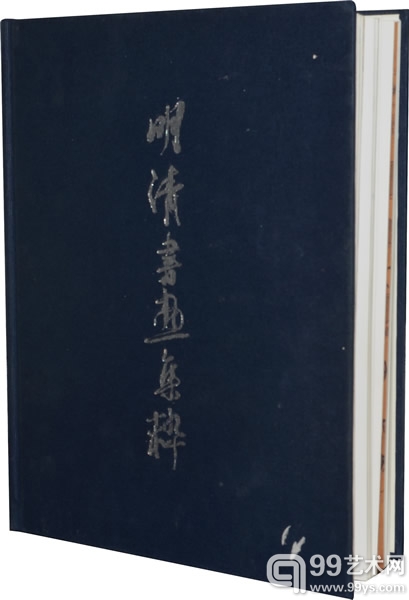 明清書画集粹
99艺术网
www.99ys.com